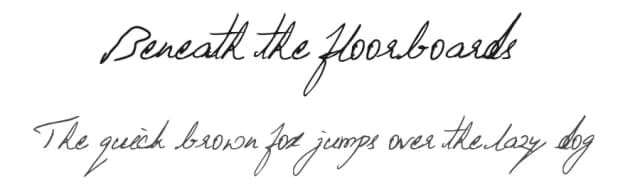 Beneath the floorboards
The quick brown fox jumps over the lazy dog